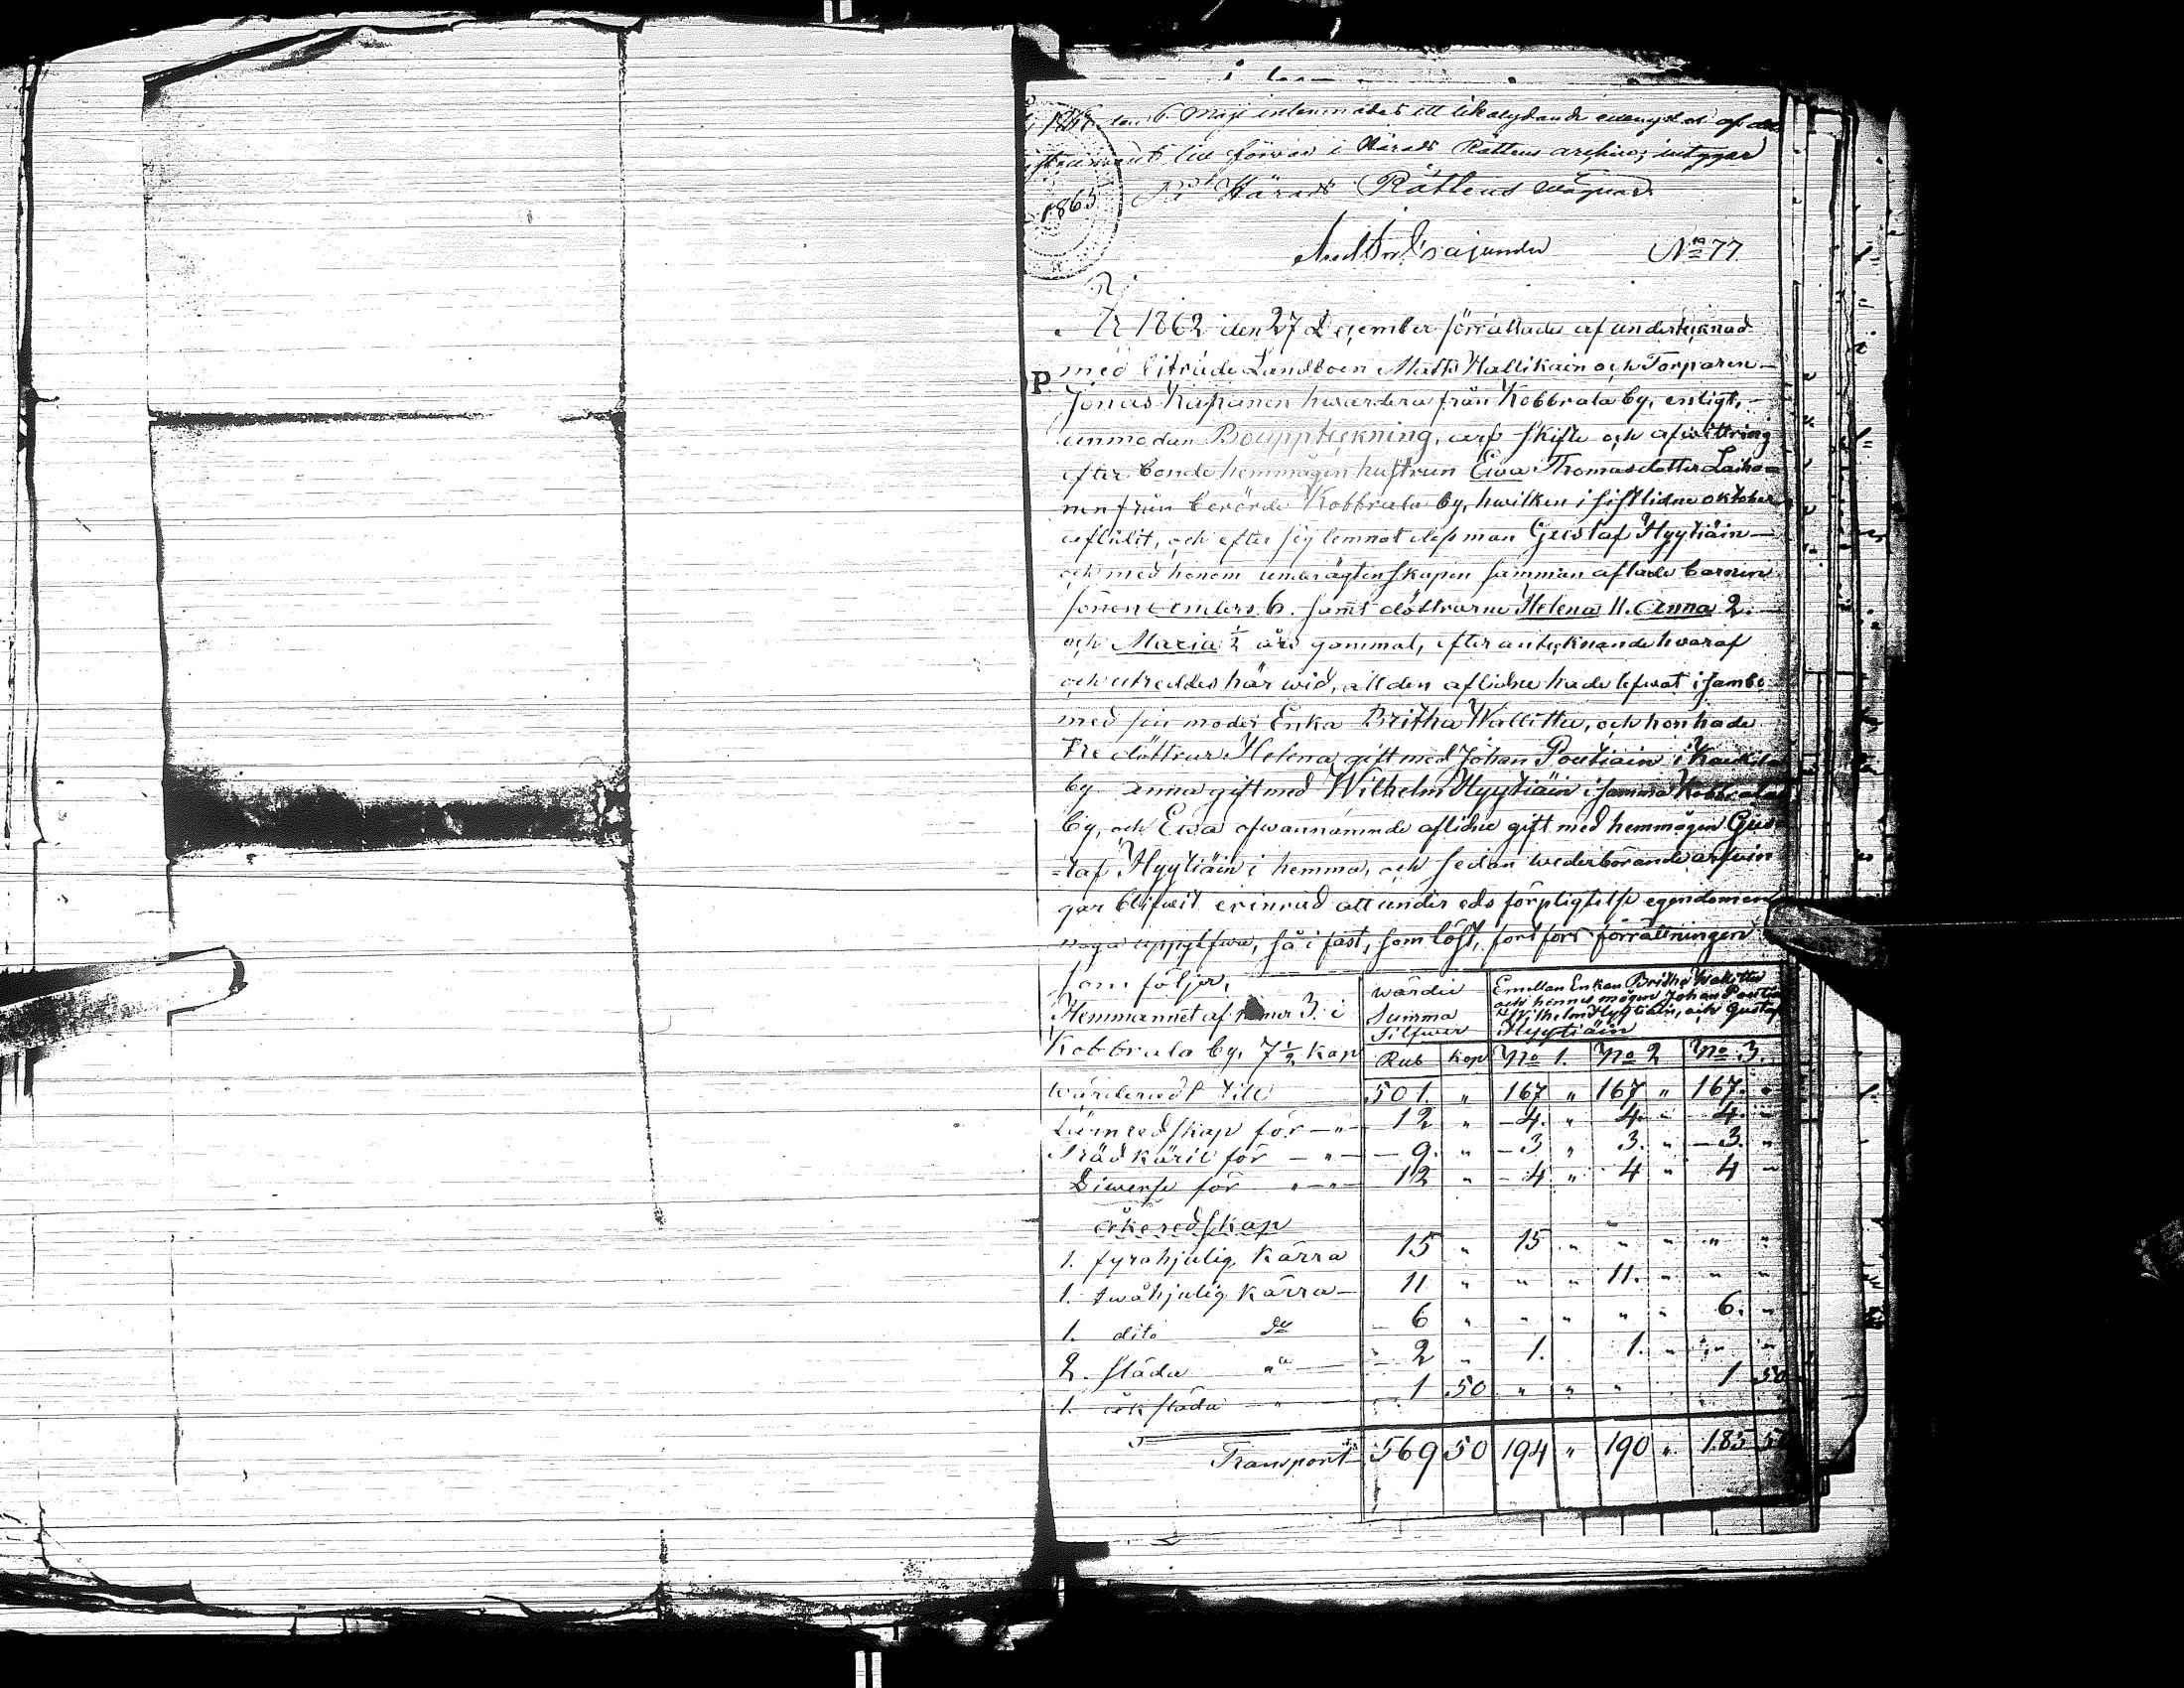 den 6 Maji inlemnades ett likalydande exemplar af detta
instrument till förvar i Härads Rättens archiv; intygar
1865 På Härads Rättens vägnar
No 77
År 1862 den 27 December förrättades af undertecknad
med biträde Landboen Matts Hallikain och Torparen
Jonas Kapanen hwardera från Kobbrala by, enligt
anmodan Bouppteckning, arf skifte och afwittring
efter bonde hemmågen hustrun Ewa Thomasdotter Laiho-
nen från berörde Kobbrala by, hwilken i sistlidne oktober
aflidit, och efter sig lemnat dess man Gustaf Hyytiäin
och med honom under ägtenskapen samman aflade barnen
sonen Anders 6. samt döttrarne Helena 11. Anna 2.
och Maria ½ års gammal, efter antecknande hwaraf
och utreddes här wid, att den aflidne hade lefwat i sambo
med sin moder Enka Britha Wallittu, och hon hade
tre döttrar Helena gift med Johan Poutiain i
by Anna gift med Wilhelm Hyytiäin i samma Kobbrala
by, och Ewa ofwannämnde aflidne gift med hemmågen Gus-
=taf Hyytiäin i hemma, och sedan wederbörande arfwin
gar blifwit erinrad att under eds förpligtelse egendomen
noga uppgifwa, så i fast, som löst, fortfors förrättningen
som följer,
wärdie Summa Silfwer
Emellan Enkan Britha Wallittu och hennes mågar Johan Poutiain Wilhelm Hyytiäin, och Gustaf Hyytiäin
Hemmannet af numer 3. i
Kobbrala by, 7½ kap Rub kop No 1. No 2 No 3.
wärderadt till 501. " 167 " 167 " 167. "
Järnredskap för " 12 " 4. " 4. " 4. "
Trädkäril för " 9. " 3 " 3. " 3. "
Diwerse för " 12 " 4. " 4 " 4 "
åkeredskap
1. fyrahjulig kärra 15 " 15 " " " " "
1. twåhjulig kärra 11 " " " 11. " " "
1. dito do 6 " " " " " 6. "
2. släda " 2 " 1. 1. " " "
1. åk släda " 1 50 " " " 1 50
Transport 569 50 194 " 190 " 185 50